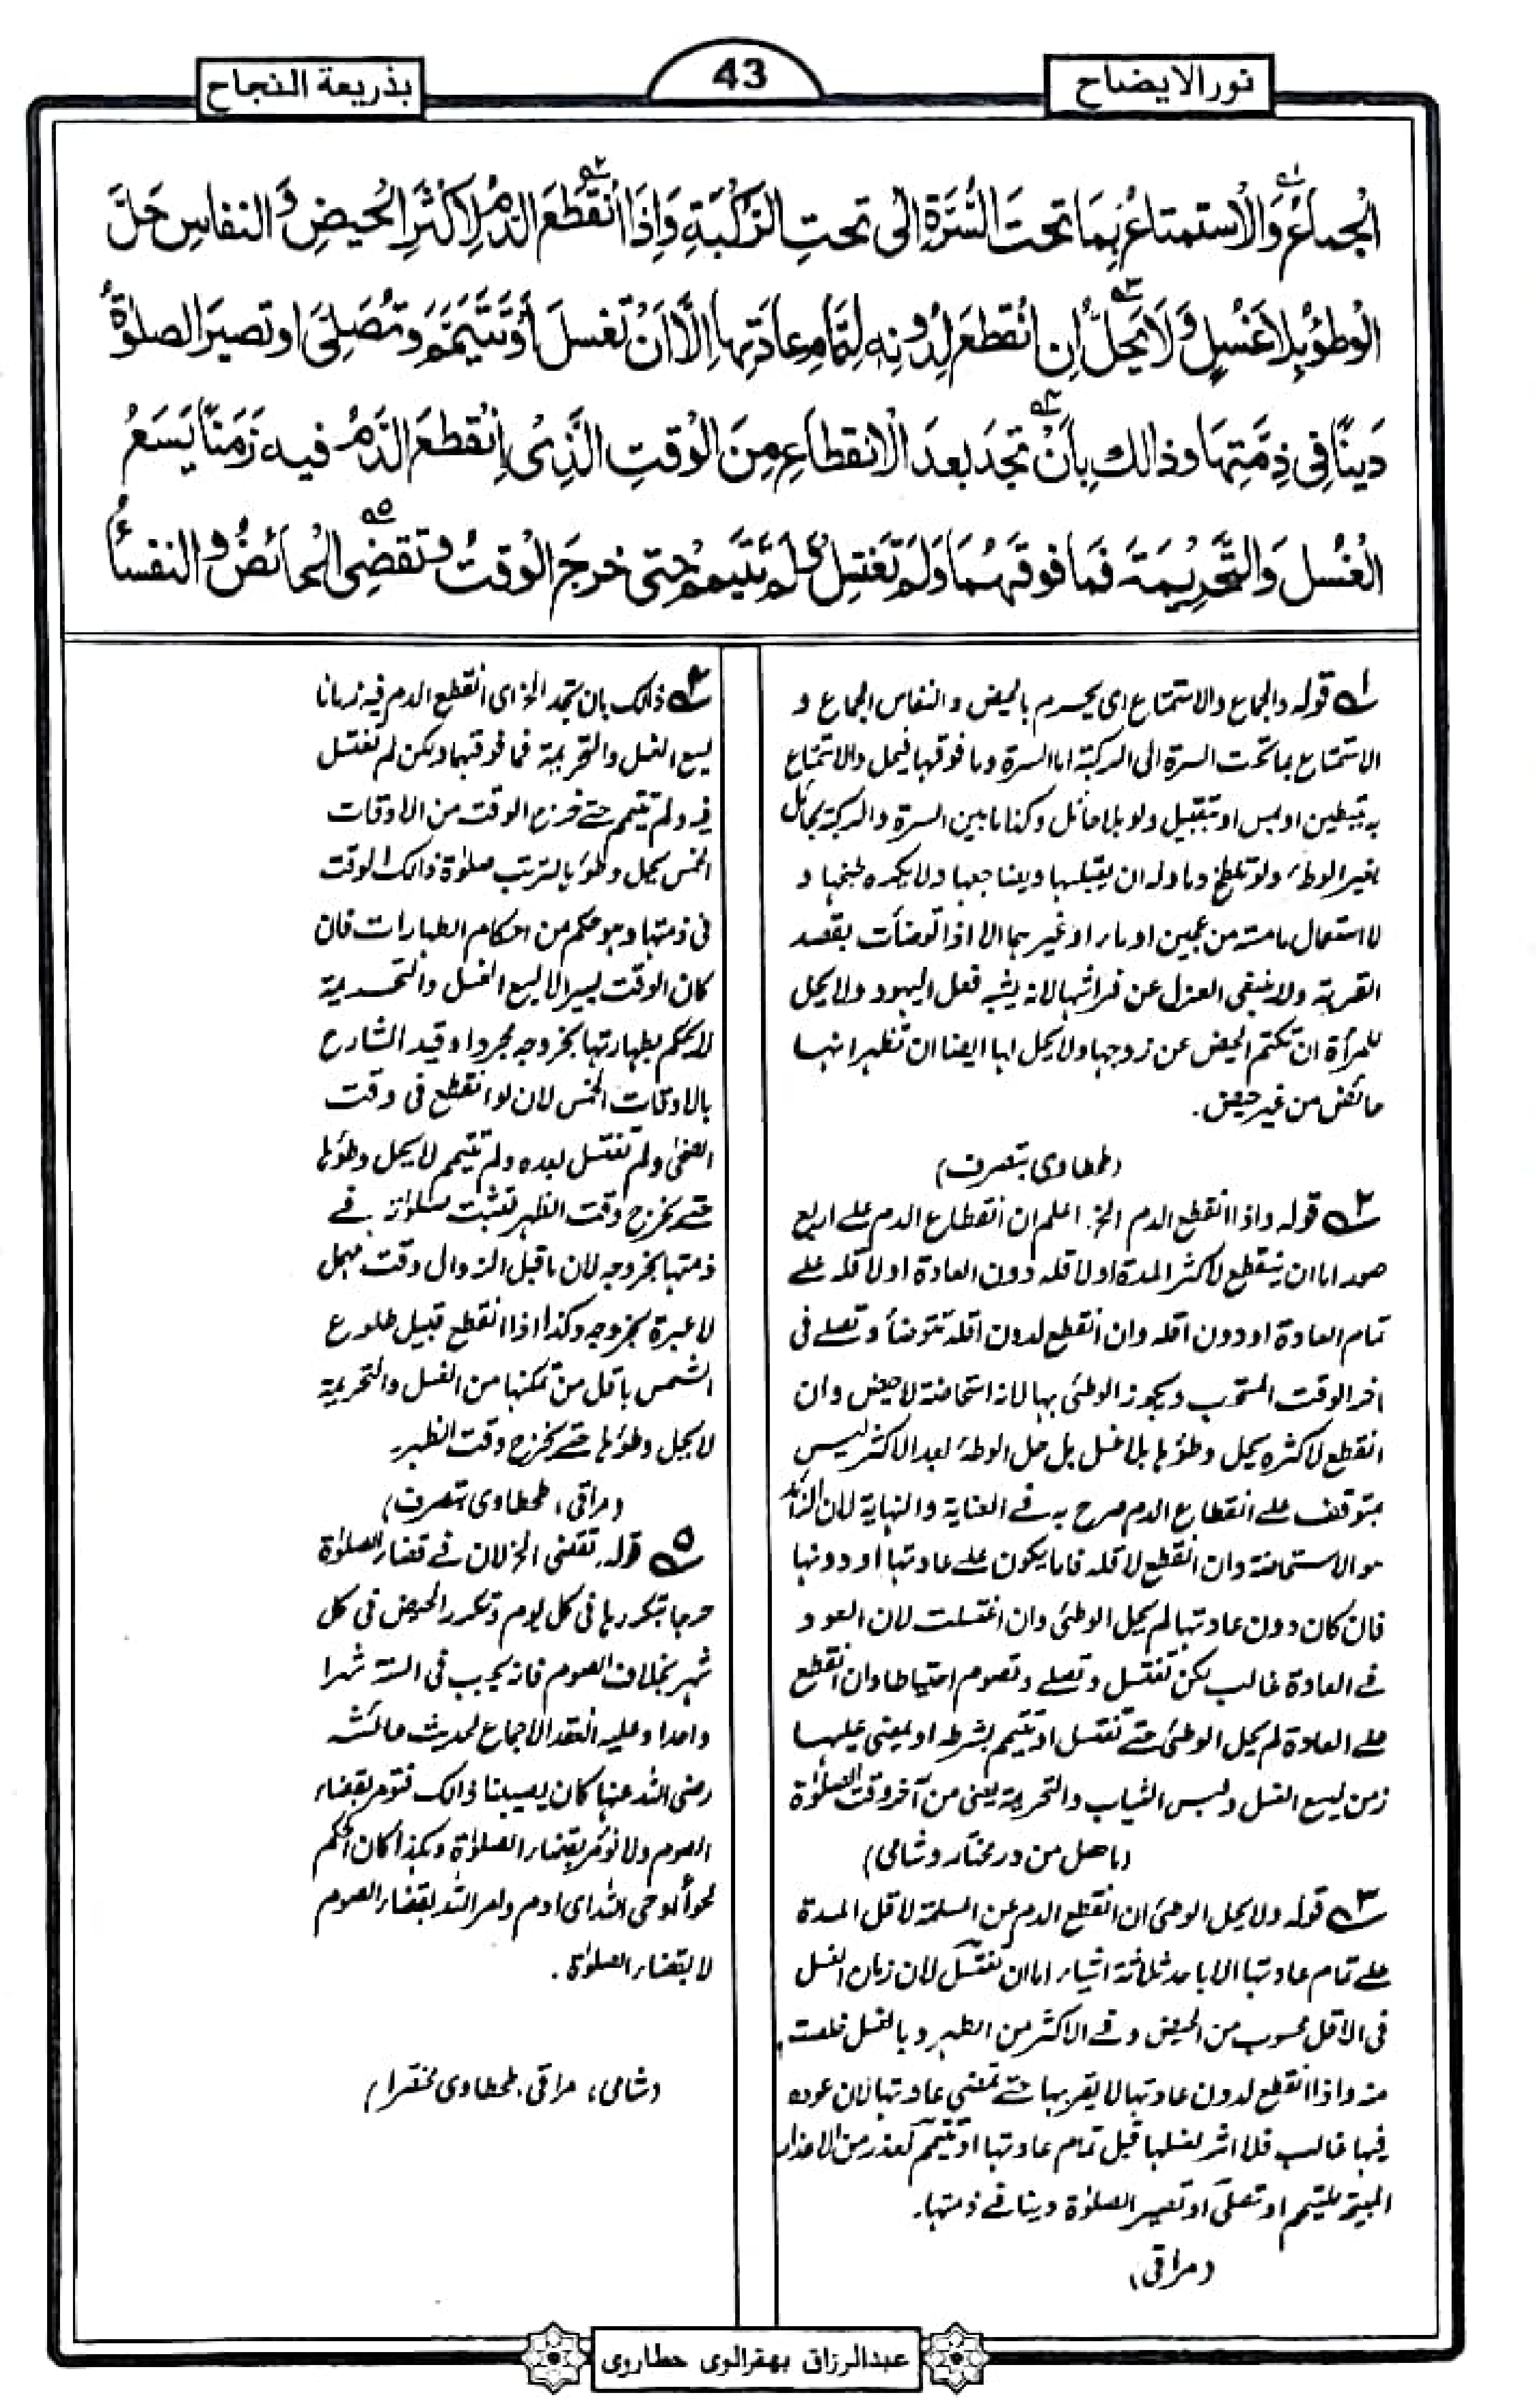 نور الايضاح
43
بذريعة النجاح
اَلْجِمَاعُ وَالْاِسْتِمْتَاعُ بِمَا تَحْتَ السُّرَّةِ اِلٰى تَحْتِ الرُّكْبَةِ وَاِذَا انْقَطَعَ الدَّمُ لِاَكْثَرِ الْحَيْضِ وَالنِّفَاسِ حَلَّ
الْوَطْؤُ بِلَا غُسْلٍ وَلَا يَحِلُّ اِنِ انْقَطَعَ لِدُوْنِهٖ لِتَمَامِ عَادَتِهَا اِلَّا اَنْ تَغْتَسِلَ اَوْ تَتَيَمَّمَ وَتُصَلِّىَ اَوْ تَصِيْرَ الصَّلٰوةُ
دَيْنًا فِى ذِمَّتِهَا وَذَالِكَ بِاَنْ تَجِدَ بَعْدَ الْاِنْقِطَاعِ مِنَ الْوَقْتِ الَّذِىْ اِنْقَطَعَ الدَّمُ فِيْهِ زَمَنًا يَسَعُ
الْغُسْلَ وَالتَّحْرِيْمَةَ فَمَا فَوْقَهُمَا وَلَمْ تَغْتَسِلْ وَلَمْ تَتَيَمَّمْ حَتّٰى خَرَجَ الْوَقْتُ وَتَقْضِى الْحَائِضُ وَالنُّفَسَاءُ
١ قوله والجماع والاستمتاع اى يحرم بالحيض والنفاس الجماع و
الاستمتاع بما تحت السرة الى الركبة اما السرة وما فوقها فيحل والاستمتاع
به بتبطين او لمس او تقبيل ولو بلا حائل وكذا ما بين السرة والركبة بحائل
بغير الوطء ولو تلطخ دما وله ان يقبلها ويضاجعها ولا يكره طبخها و
لا استعمال ما مسته من عجين او ماء او غيرهما الا اذا توضأت بقصد
القربة ولا ينبغى العزل عن فراشها لانه يشبه فعل اليهود ولا يحل
للمرأة ان تكتم الحيض عن زوجها ولا يحل لها ايضا ان تظهر انها
حائض من غير حيض.
(طحطاوى بتصرف)
٢ قوله واذا انقطع الدم الخ. اعلم ان انقطاع الدم على اربع
صور اما ان ينقطع لاكثر المدة او لاقله دون العادة او لاقله على
تمام العادة او دون اقله وان انقطع لدون اقله تتوضأ وتصلى فى
اخر الوقت المستحب ويجوز الوطئ بها لانه استحاضة لا حيض وان
انقطع لاكثره يحل وطؤها بلا غسل بل حل الوطء بعد الاكثر ليس
بمتوقف على انقطاع الدم صرح به فى العناية والنهاية لان الزائد
هو الاستحاضة وان انقطع لاقله فاما يكون على عادتها او دونها
فان كان دون عادتها لم يحل الوطئ وان اغتسلت لان العود
فى العادة غالب لكن تغتسل وتصلى وتصوم احتياطا وان انقطع
على العادة لم يحل الوطئ حتى تغتسل او تتيمم بشرطه او يمضى عليها
زمن يسع الغسل ولبس الثياب والتحريمة يعنى من آخر وقت الصلوٰة
(ماحصل من درمختار و شامى)
٣ قوله ولا يحل الوطئ ان انقطع الدم عن المسلمة لاقل المدة
على تمام عادتها الا باحد ثلاثة اشياء اما ان تغتسل لان زمان الغسل
فى الاقل محسوب من الحيض وفى الاكثر من الطهر وبالغسل خلصت
منه واذا انقطع لدون عادتها لا يقربها حتى تمضى عادتها لان عوده
فيها غالب فلا اثر لغسلها قبل تمام عادتها او تتيمم لعذر من الاعذار
المبيحة للتيمم او تصلى او تصير الصلوٰة دينا فى ذمتها.
(مراقى)
٤ ذلك بان تجد الخ اى انقطع الدم فيه زمانا
يسع الغسل والتحريمة فما فوقهما ولكن لم تغتسل
فيه ولم تتيمم حتى خرج الوقت من الاوقات
الخمس يحل وطؤها بالترتب صلوٰة ذالك الوقت
فى ذمتها وهو حكم من احكام الطهارات فان
كان الوقت يسيرا لا يسع الغسل والتحريمة
لا يحكم بطهارتها بخروجه مجردا وقيد الشارع
بالاوقات الخمس لان لو انقطع فى وقت
الضحىٰ ولم تغتسل بعده ولم تتيمم لا يحل وطؤها
حتى يخرج وقت الظهر فتثبت صلوٰته فى
ذمتها بخروجه لان ما قبل الزوال وقت مهمل
لا عبرة بخروجه وكذا اذا انقطع قبيل طلوع
الشمس باقل من تمكنها من الغسل والتحريمة
لا يحل وطؤها حتى يخرج وقت الظهر
(مراقى، طحطاوى بتصرف)
٥ قوله تقضى الخ لان فى قضاء الصلوٰة
حرجا بتكررها فى كل يوم وتكرر الحيض فى كل
شهر بخلاف الصوم فانه يجب فى السنة شهرا
واحدا وعليه انعقد الاجماع لحديث عائشة
رضى الله عنها كان يصيبنا ذالك فنؤمر بقضاء
الصوم ولا نؤمر بقضاء الصلوٰة وهكذا كان الحكم
حواء اوحى الله اى ادم وامر الله بقضاء الصوم
لا بقضاء الصلوٰة.
(شامى، مراقى، طحطاوى مختصرا)
عبدالرزاق بهترالوى حطاروى